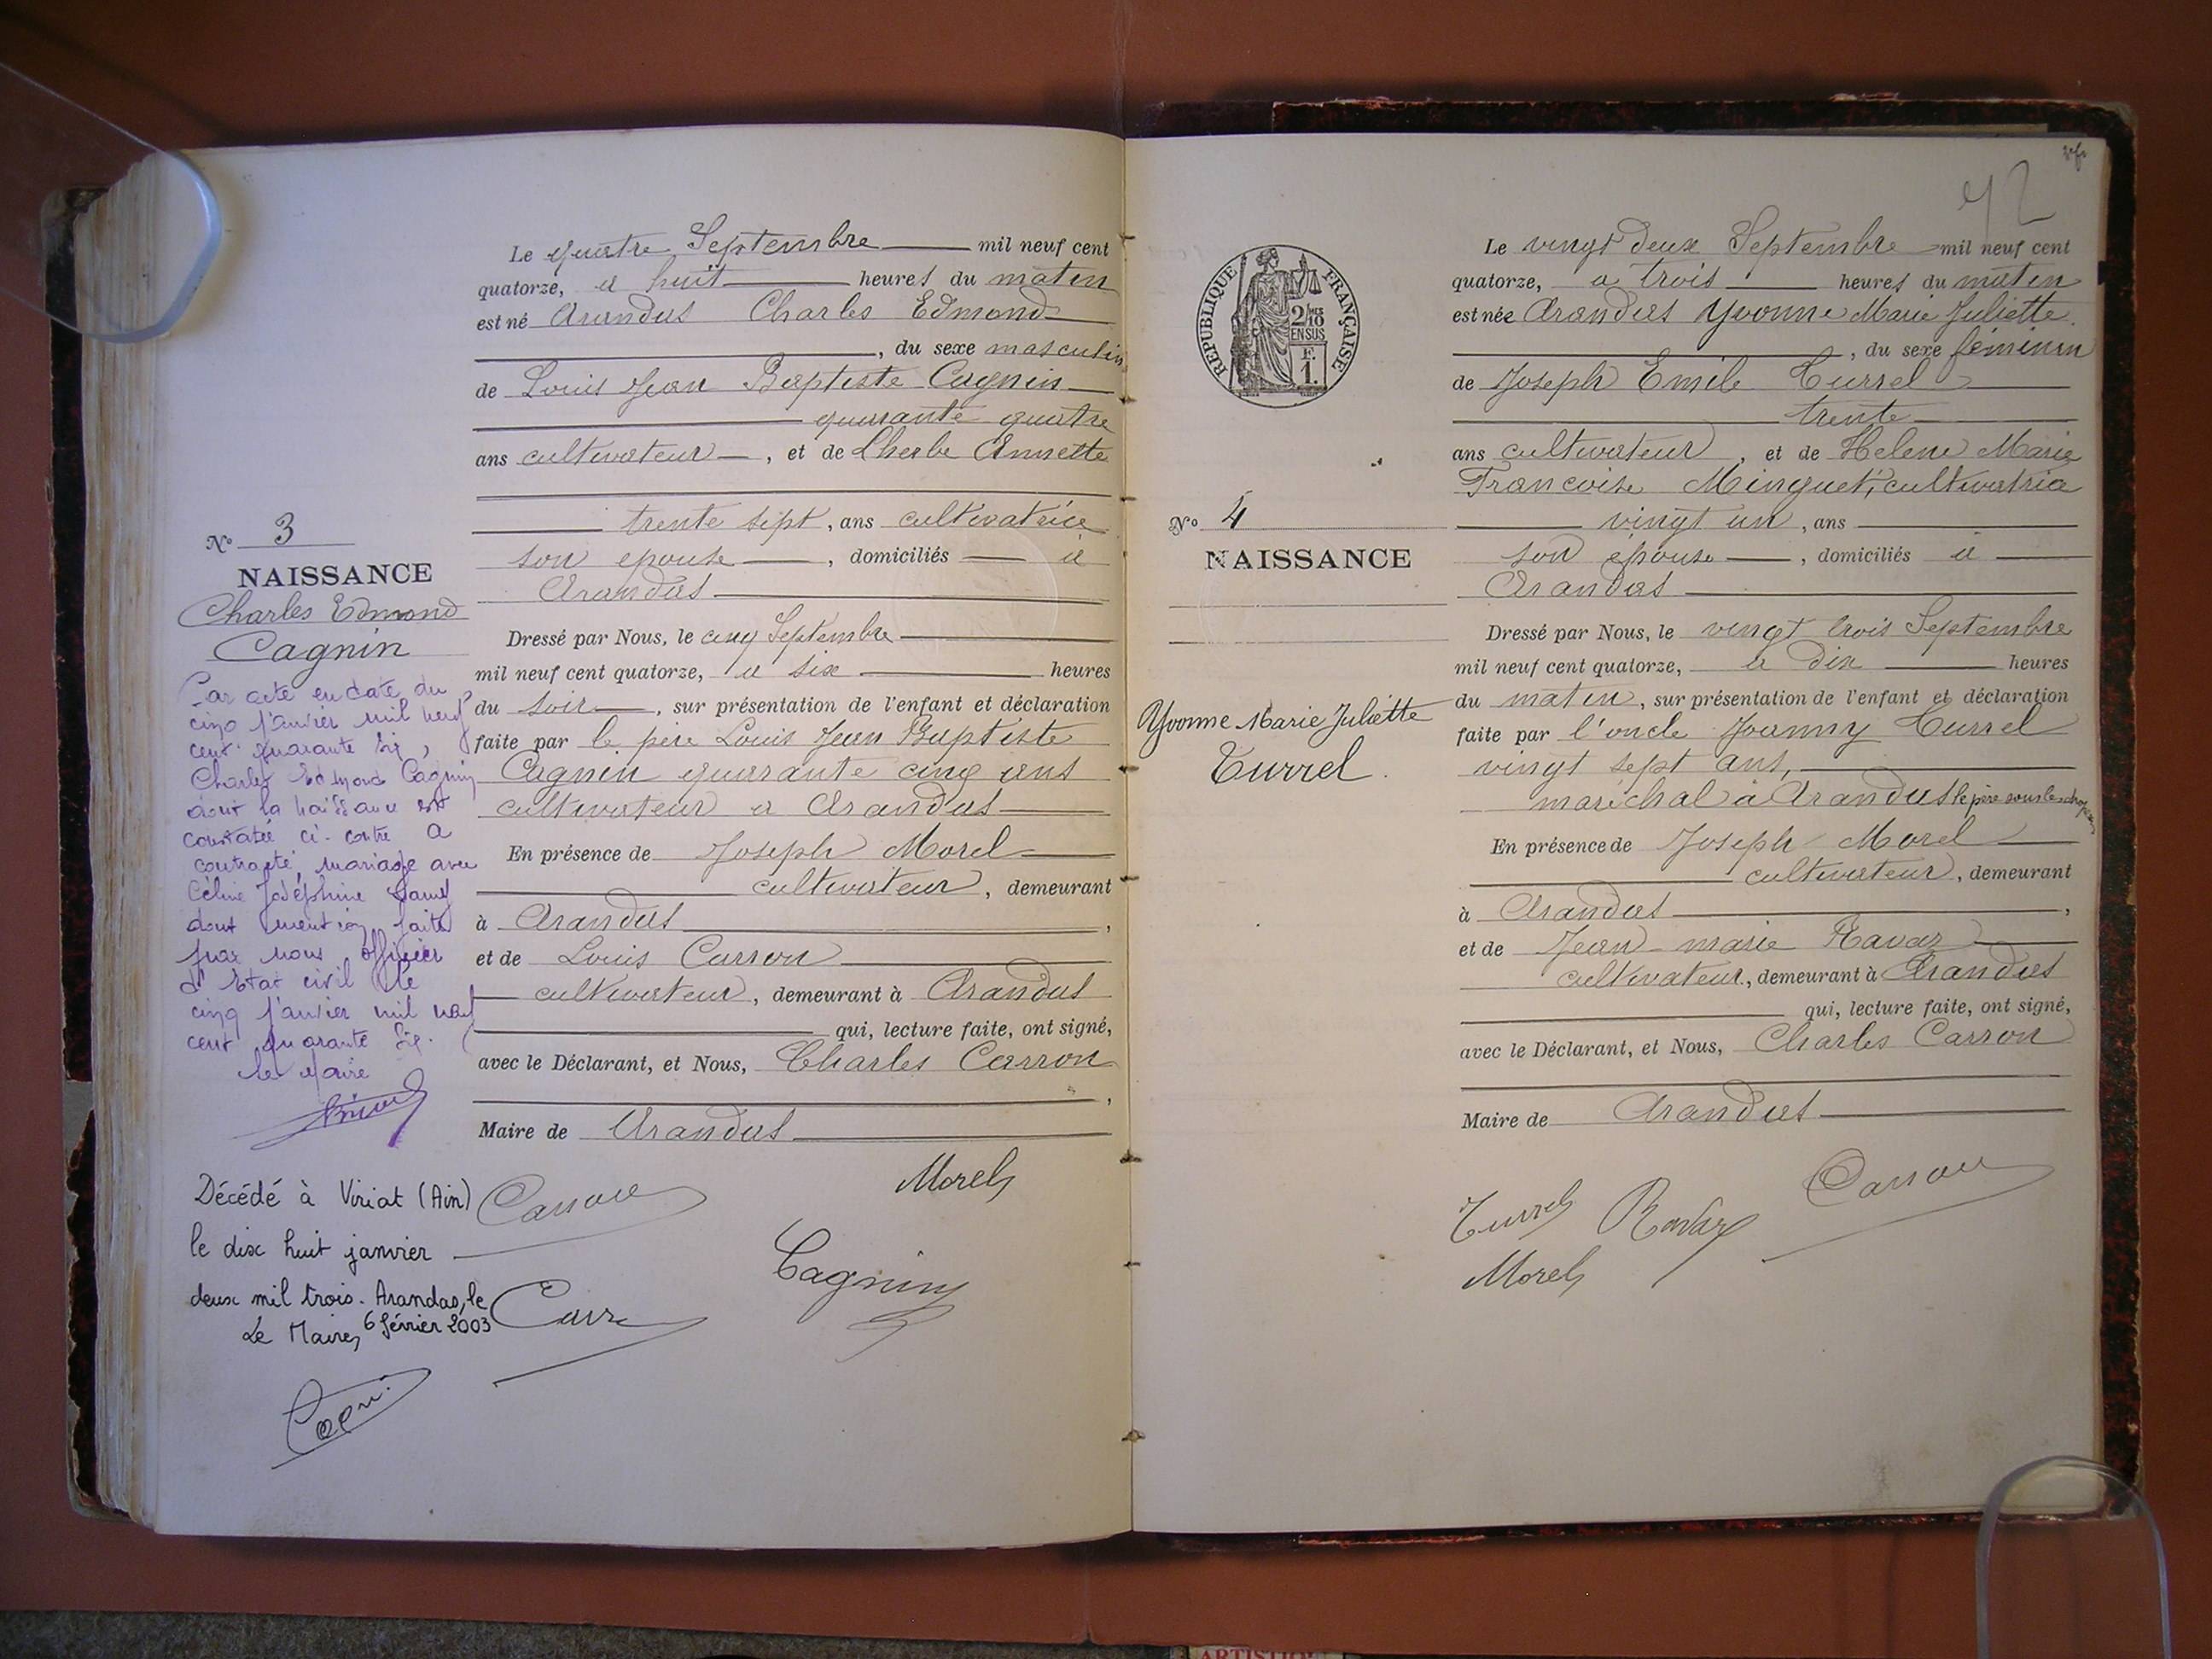 Le quatre Septembre mil neuf cent
quatorze, à huit heures du matin
est né Arandas Charles Edmond
, du sexe masculin
de Louis Jean Baptiste Cagnin
quarante quatre
ans cultivateur , et de Cherbe Annette
trente sept , ans cultivatrice
son epouse , domiciliés à
Arandas
Dressé par Nous, le cinq Septembre
mil neuf cent quatorze, à six heures
du soir , sur présentation de l'enfant et déclaration
faite par le père Louis Jean Baptiste
Cagnin quarante cinq ans
cultivateur a Arandas
En présence de Joseph Morel
cultivateur , demeurant
à Arandas ,
et de Louis Carron
cultivateur , demeurant à Arandas
qui, lecture faite, ont signé,
avec le Déclarant, et Nous, Charles Carron
,
Maire de Arandas
Morel
Carron
Cagnin
Carr
No 3
NAISSANCE
Charles Edmond
Cagnin
Par acte en date du
cinq janvier mil neuf
cent quarante six,
Charles Edmond Cagnin
dont la naissance est
constatée ci-contre a
contracté mariage avec
Céline Joséphine
dont mention faite
par nous officier
d'Etat civil le
cinq janvier mil neuf
cent quarante six.
le Maire
Décédé à Viriat (Ain)
le dix huit janvier
deux mil trois. Arandas, le
6 février 2003
Le Maire,
42
RÉPUBLIQUE FRANÇAISE
2/10
EN SUS
F.
1.
No 4
NAISSANCE
Yvonne Marie Juliette
Turrel.
Le vingt deux Septembre mil neuf cent
quatorze, a trois heures du matin
est née Arandas Yvonne Marie Juliette
, du sexe féminin
de Joseph Emile Turrel
trente
ans cultivateur , et de Helene Marie
Francoise Minguet, cultivatrice
vingt un , ans
son épouse , domiciliés à
Arandas
Dressé par Nous, le vingt trois Septembre
mil neuf cent quatorze, à dix heures
du matin , sur présentation de l'enfant et déclaration
faite par l'oncle Joanny Turrel
vingt sept ans,
maréchal à Arandas le père sous les drapeaux
En présence de Joseph Morel
cultivateur , demeurant
à Arandas ,
et de Jean-marie Ravaz
cultivateur, demeurant à Arandas
qui, lecture faite, ont signé,
avec le Déclarant, et Nous, Charles Carron
Maire de Arandas
Turrel Ravaz Carron
Morel
ARTISTIQUE